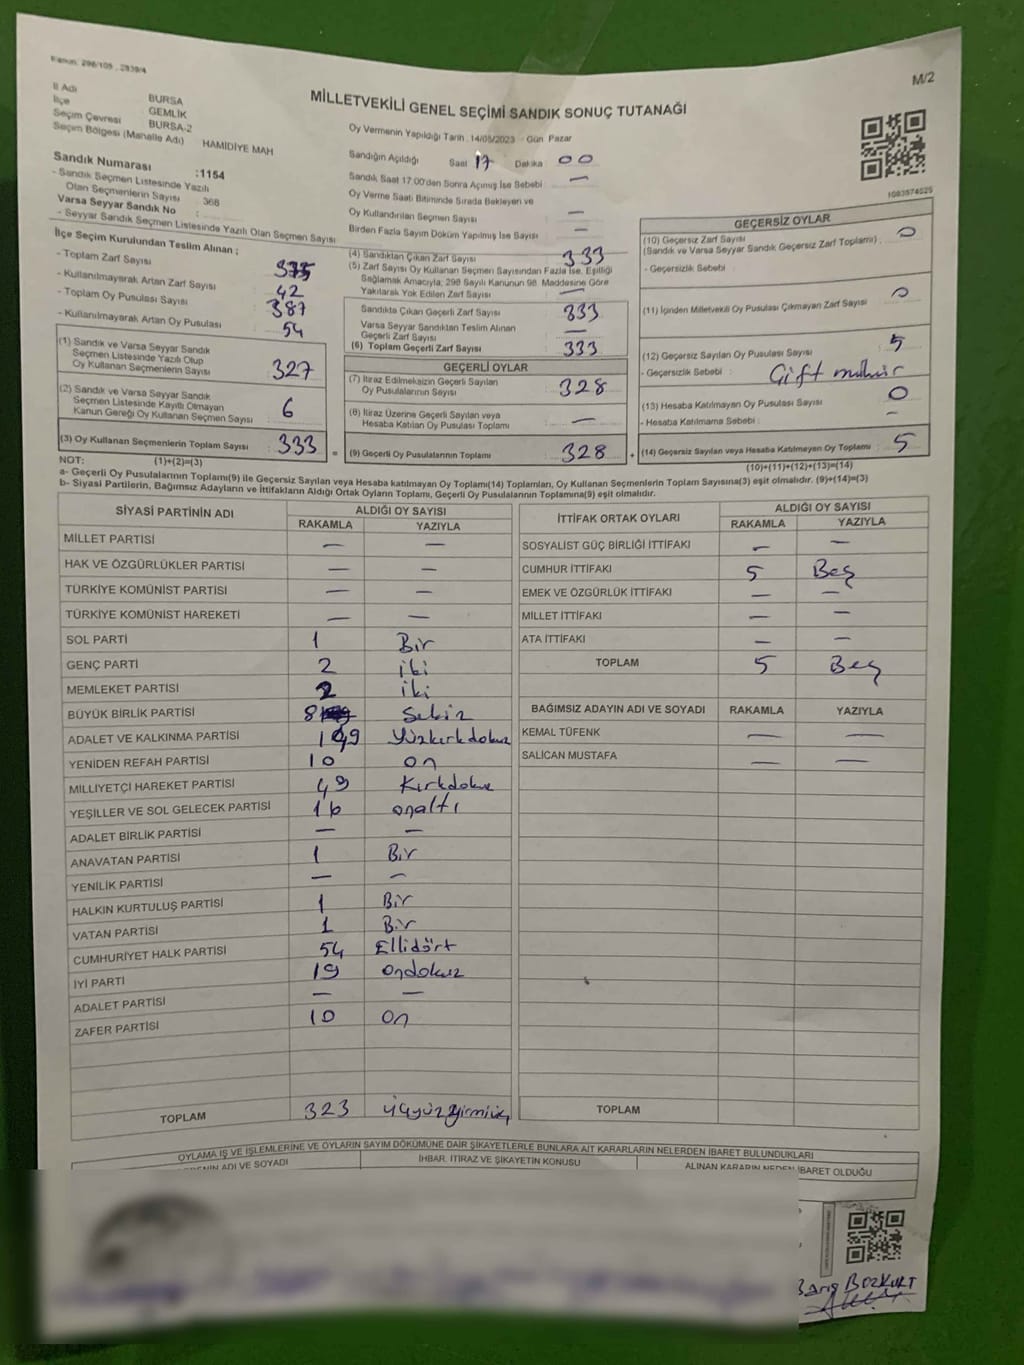 Kanun: 298/105 , 2839/4
M/2
MİLLETVEKİLİ GENEL SEÇİMİ SANDIK SONUÇ TUTANAĞI
İl Adı : BURSA
İlçe : GEMLİK
Seçim Çevresi : BURSA-2
Seçim Bölgesi (Mahalle Adı) : HAMİDİYE MAH
Sandık Numarası :1154
- Sandık Seçmen Listesinde Yazılı
Olan Seçmenlerin Sayısı : 368
Varsa Seyyar Sandık No :
- Seyyar Sandık Seçmen Listesinde Yazılı Olan Seçmen Sayısı :
Oy Vermenin Yapıldığı Tarih :14/05/2023 - Gün Pazar
Sandığın Açıldığı Saat 17 Dakika 00
Sandık Saat 17:00'den Sonra Açılmış İse Sebebi : —
Oy Verme Saati Bitiminde Sırada Bekleyen ve
Oy Kullandırılan Seçmen Sayısı : —
Birden Fazla Sayım Döküm Yapılmış İse Sayısı : —
İlçe Seçim Kurulundan Teslim Alınan ;
- Toplam Zarf Sayısı : 375
- Kullanılmayarak Artan Zarf Sayısı : 42
- Toplam Oy Pusulası Sayısı : 387
- Kullanılmayarak Artan Oy Pusulası : 54
(1) Sandık ve Varsa Seyyar Sandık
Seçmen Listesinde Yazılı Olup
Oy Kullanan Seçmenlerin Sayısı : 327
(2) Sandık ve Varsa Seyyar Sandık
Seçmen Listesinde Kayıtlı Olmayan
Kanun Gereği Oy Kullanan Seçmen Sayısı : 6
(3) Oy Kullanan Seçmenlerin Toplam Sayısı : 333
(4) Sandıktan Çıkan Zarf Sayısı : 333
(5) Zarf Sayısı Oy Kullanan Seçmen Sayısından Fazla İse, Eşitliği
Sağlamak Amacıyla; 298 Sayılı Kanunun 98. Maddesine Göre
Yakılarak Yok Edilen Zarf Sayısı : —
Sandıkta Çıkan Geçerli Zarf Sayısı : 333
Varsa Seyyar Sandıktan Teslim Alınan
Geçerli Zarf Sayısı : —
(6) Toplam Geçerli Zarf Sayısı : 333
GEÇERLİ OYLAR
(7) İtiraz Edilmeksizin Geçerli Sayılan
Oy Pusulalarının Sayısı : 328
(8) İtiraz Üzerine Geçerli Sayılan veya
Hesaba Katılan Oy Pusulası Toplamı : —
= (9) Geçerli Oy Pusulalarının Toplamı : 328 +
1083574025
GEÇERSİZ OYLAR
(10) Geçersiz Zarf Sayısı : 0
(Sandık ve Varsa Seyyar Sandık Geçersiz Zarf Toplamı)
- Geçersizlik Sebebi :
(11) İçinden Milletvekili Oy Pusulası Çıkmayan Zarf Sayısı : 0
(12) Geçersiz Sayılan Oy Pusulası Sayısı : 5
- Geçersizlik Sebebi : Çift mühür
(13) Hesaba Katılmayan Oy Pusulası Sayısı : 0
- Hesaba Katılmama Sebebi : —
(14) Geçersiz Sayılan veya Hesaba Katılmayan Oy Toplamı : 5
NOT: (1)+(2)=(3)
(10)+(11)+(12)+(13)=(14)
a- Geçerli Oy Pusulalarının Toplamı(9) ile Geçersiz Sayılan veya Hesaba katılmayan Oy Toplamı(14) Toplamları, Oy Kullanan Seçmenlerin Toplam Sayısına(3) eşit olmalıdır. (9)+(14)=(3)
b- Siyasi Partilerin, Bağımsız Adayların ve İttifakların Aldığı Ortak Oyların Toplamı, Geçerli Oy Pusulalarının Toplamına(9) eşit olmalıdır.
SİYASİ PARTİNİN ADI ALDIĞI OY SAYISI
RAKAMLA YAZIYLA
MİLLET PARTİSİ — —
HAK VE ÖZGÜRLÜKLER PARTİSİ — —
TÜRKİYE KOMÜNİST PARTİSİ — —
TÜRKİYE KOMÜNİST HAREKETİ — —
SOL PARTİ 1 Bir
GENÇ PARTİ 2 iki
MEMLEKET PARTİSİ 2 iki
BÜYÜK BİRLİK PARTİSİ 8 Sekiz
ADALET VE KALKINMA PARTİSİ 149 Yüzkırkdokuz
YENİDEN REFAH PARTİSİ 10 on
MİLLİYETÇİ HAREKET PARTİSİ 49 Kırkdokuz
YEŞİLLER VE SOL GELECEK PARTİSİ 16 onaltı
ADALET BİRLİK PARTİSİ — —
ANAVATAN PARTİSİ 1 Bir
YENİLİK PARTİSİ — —
HALKIN KURTULUŞ PARTİSİ 1 Bir
VATAN PARTİSİ 1 Bir
CUMHURİYET HALK PARTİSİ 54 Ellidört
İYİ PARTİ 19 ondokuz
ADALET PARTİSİ — —
ZAFER PARTİSİ 10 On
TOPLAM 323 üçyüzyirmiüç
İTTİFAK ORTAK OYLARI ALDIĞI OY SAYISI
RAKAMLA YAZIYLA
SOSYALİST GÜÇ BİRLİĞİ İTTİFAKI — —
CUMHUR İTTİFAKI 5 Beş
EMEK VE ÖZGÜRLÜK İTTİFAKI — —
MİLLET İTTİFAKI — —
ATA İTTİFAKI — —
TOPLAM 5 Beş
BAĞIMSIZ ADAYIN ADI VE SOYADI RAKAMLA YAZIYLA
KEMAL TÜFENK — —
SALİCAN MUSTAFA — —
TOPLAM
OYLAMA İŞ VE İŞLEMLERİNE VE OYLARIN SAYIM DÖKÜMÜNE DAİR ŞİKAYETLERLE BUNLARA AİT KARARLARIN NELERDEN İBARET BULUNDUKLARI
ADI VE SOYADI İHBAR, İTİRAZ VE ŞİKAYETİN KONUSU ALINAN KARARIN NEDEN İBARET OLDUĞU
Barış BOZKURT